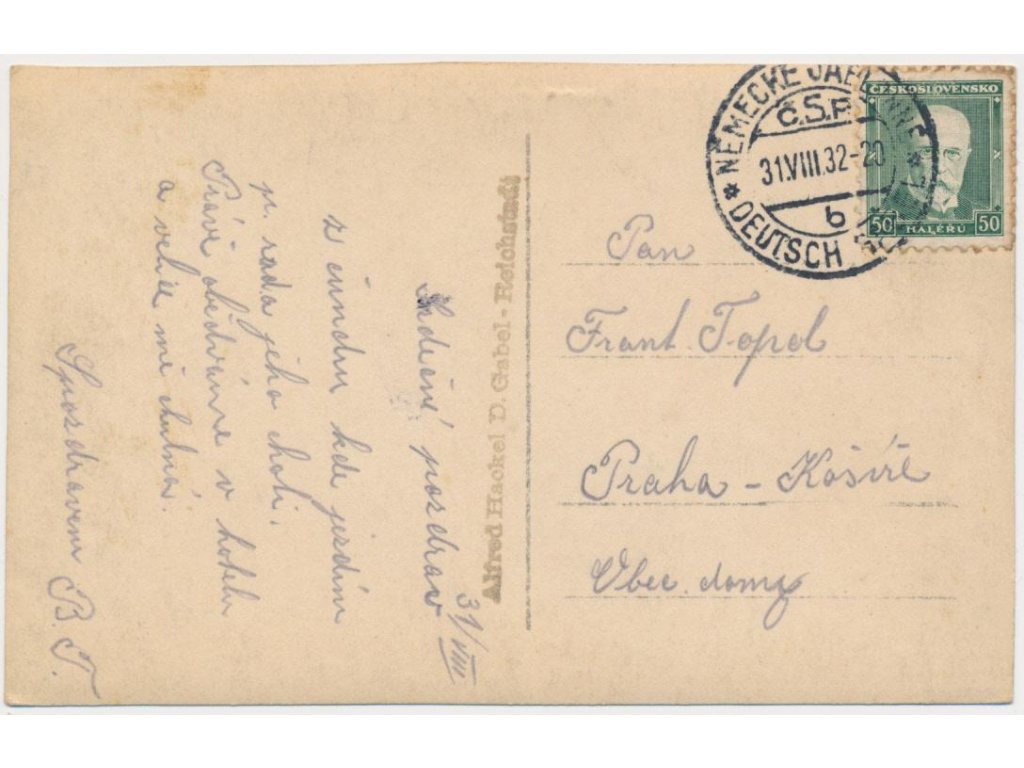 31/VIII
Srdečný pozdrav
z výndru kde jezdím
p. rada jeho choti.
Právě obědváme v hotelu
a velice mi chutná.
S pozdravem B. T.
Alfred Hackel D. Gabel - Reichstadt
NĚMECKÉ JABLONNÉ
Č.S.P.
31.VIII.32-20
b
DEUTSCH
ČESKOSLOVENSKO
50 HALÉŘŮ 50
Pan
Frant. Topol
Praha - Košíře
Obec. domy